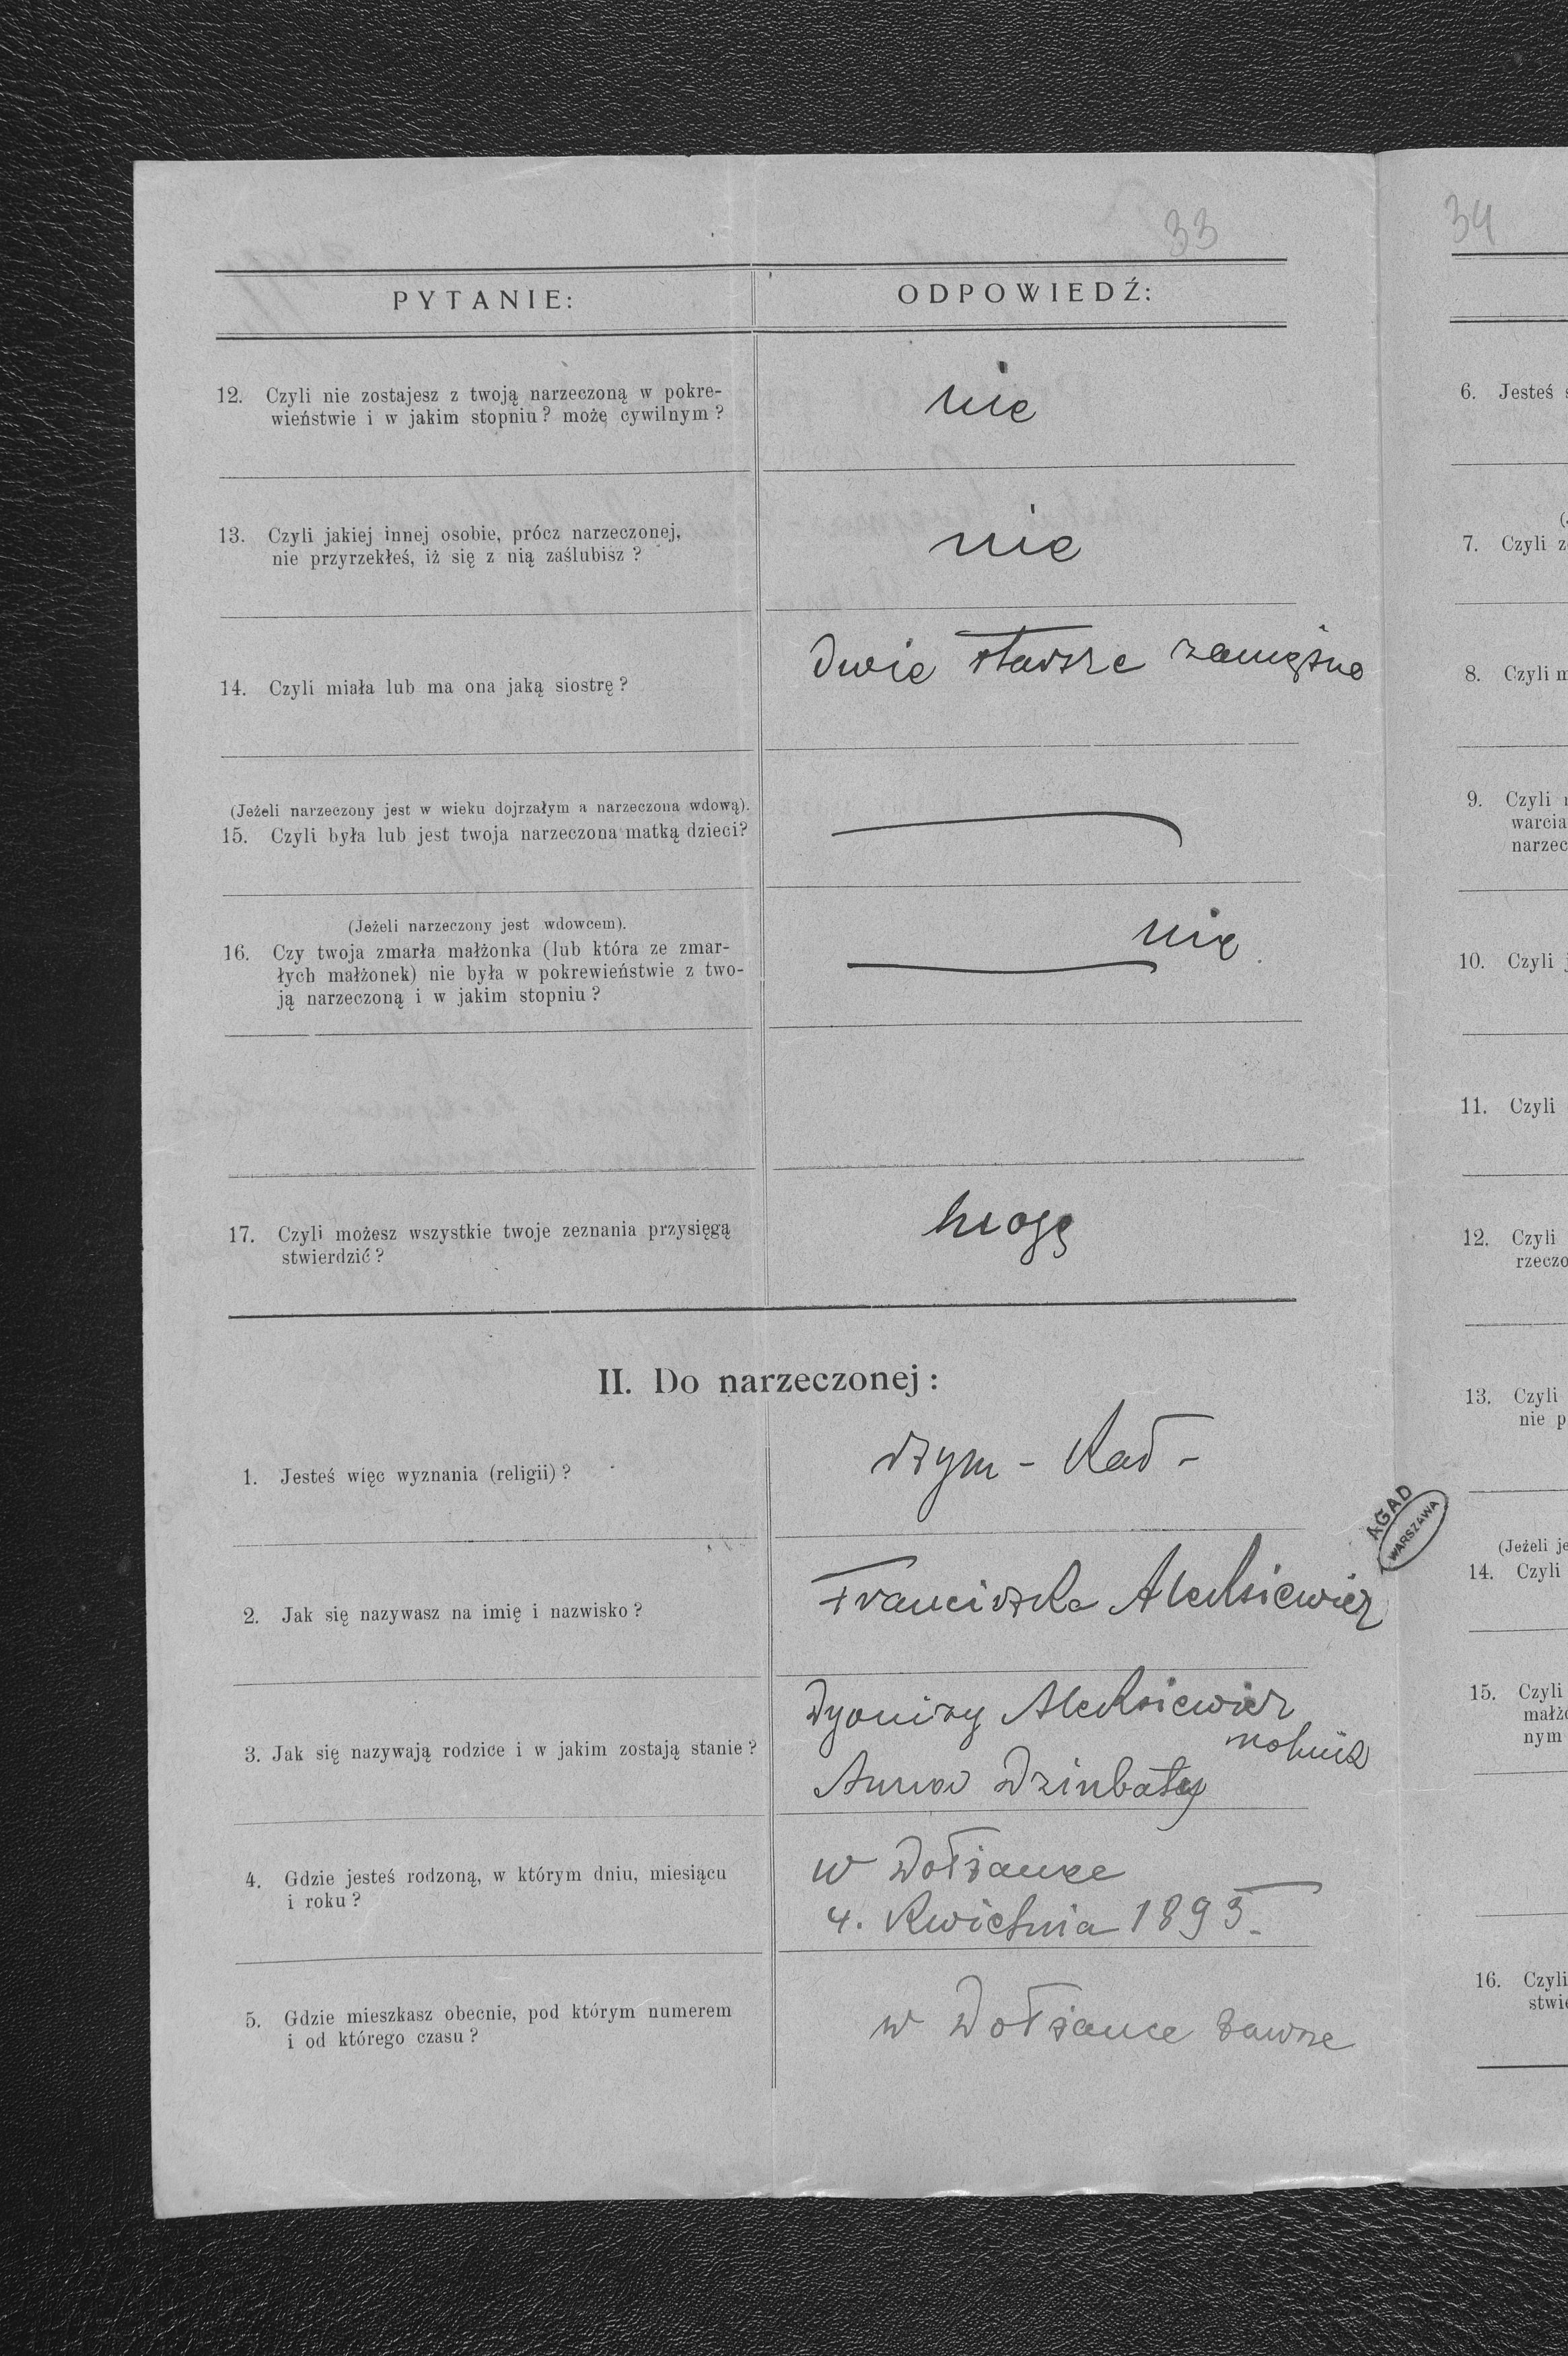 33
PYTANIE:
ODPOWIEDŹ:
12. Czyli nie zostajesz z twoją narzeczoną w pokre-
wieństwie i w jakim stopniu? możę cywilnym?
nie
13. Czyli jakiej innej osobie, prócz narzeczonej,
nie przyrzekłeś, iż się z nią zaślubisz?
nie
14. Czyli miała lub ma ona jaką siostrę?
dwie starsze zamężne
(Jeżeli narzeczony jest w wieku dojrzałym a narzeczona wdową).
15. Czyli była lub jest twoja narzeczona matką dzieci?
(Jeżeli narzeczony jest wdowcem).
16. Czy twoja zmarła małżonka (lub która ze zmar-
łych małżonek) nie była w pokrewieństwie z two-
ją narzeczoną i w jakim stopniu?
nie
17. Czyli możesz wszystkie twoje zeznania przysięgą
stwierdzić?
mogę
II. Do narzeczonej:
1. Jesteś więc wyznania (religii)?
rzym - kat -
2. Jak się nazywasz na imię i nazwisko?
Franciszka Aleksiewicz
3. Jak się nazywają rodzice i w jakim zostają stanie?
Dyonizy Aleksiewicz
rolnik
Anna Dziubaty
4. Gdzie jesteś rodzoną, w którym dniu, miesiącu
i roku?
w Dołżance
4. kwietnia 1895
5. Gdzie mieszkasz obecnie, pod którym numerem
i od którego czasu?
w Dołżance zawsze
AGAD
WARSZAWA
34
6. Jesteś
7. Czyli z
8. Czyli m
9. Czyli
warcia
narzec
10. Czyli j
11. Czyli
12. Czyli
rzeczo
13. Czyli
nie p
(Jeżeli je
14. Czyli
15. Czyli
małżo
nym
16. Czyli
stwie